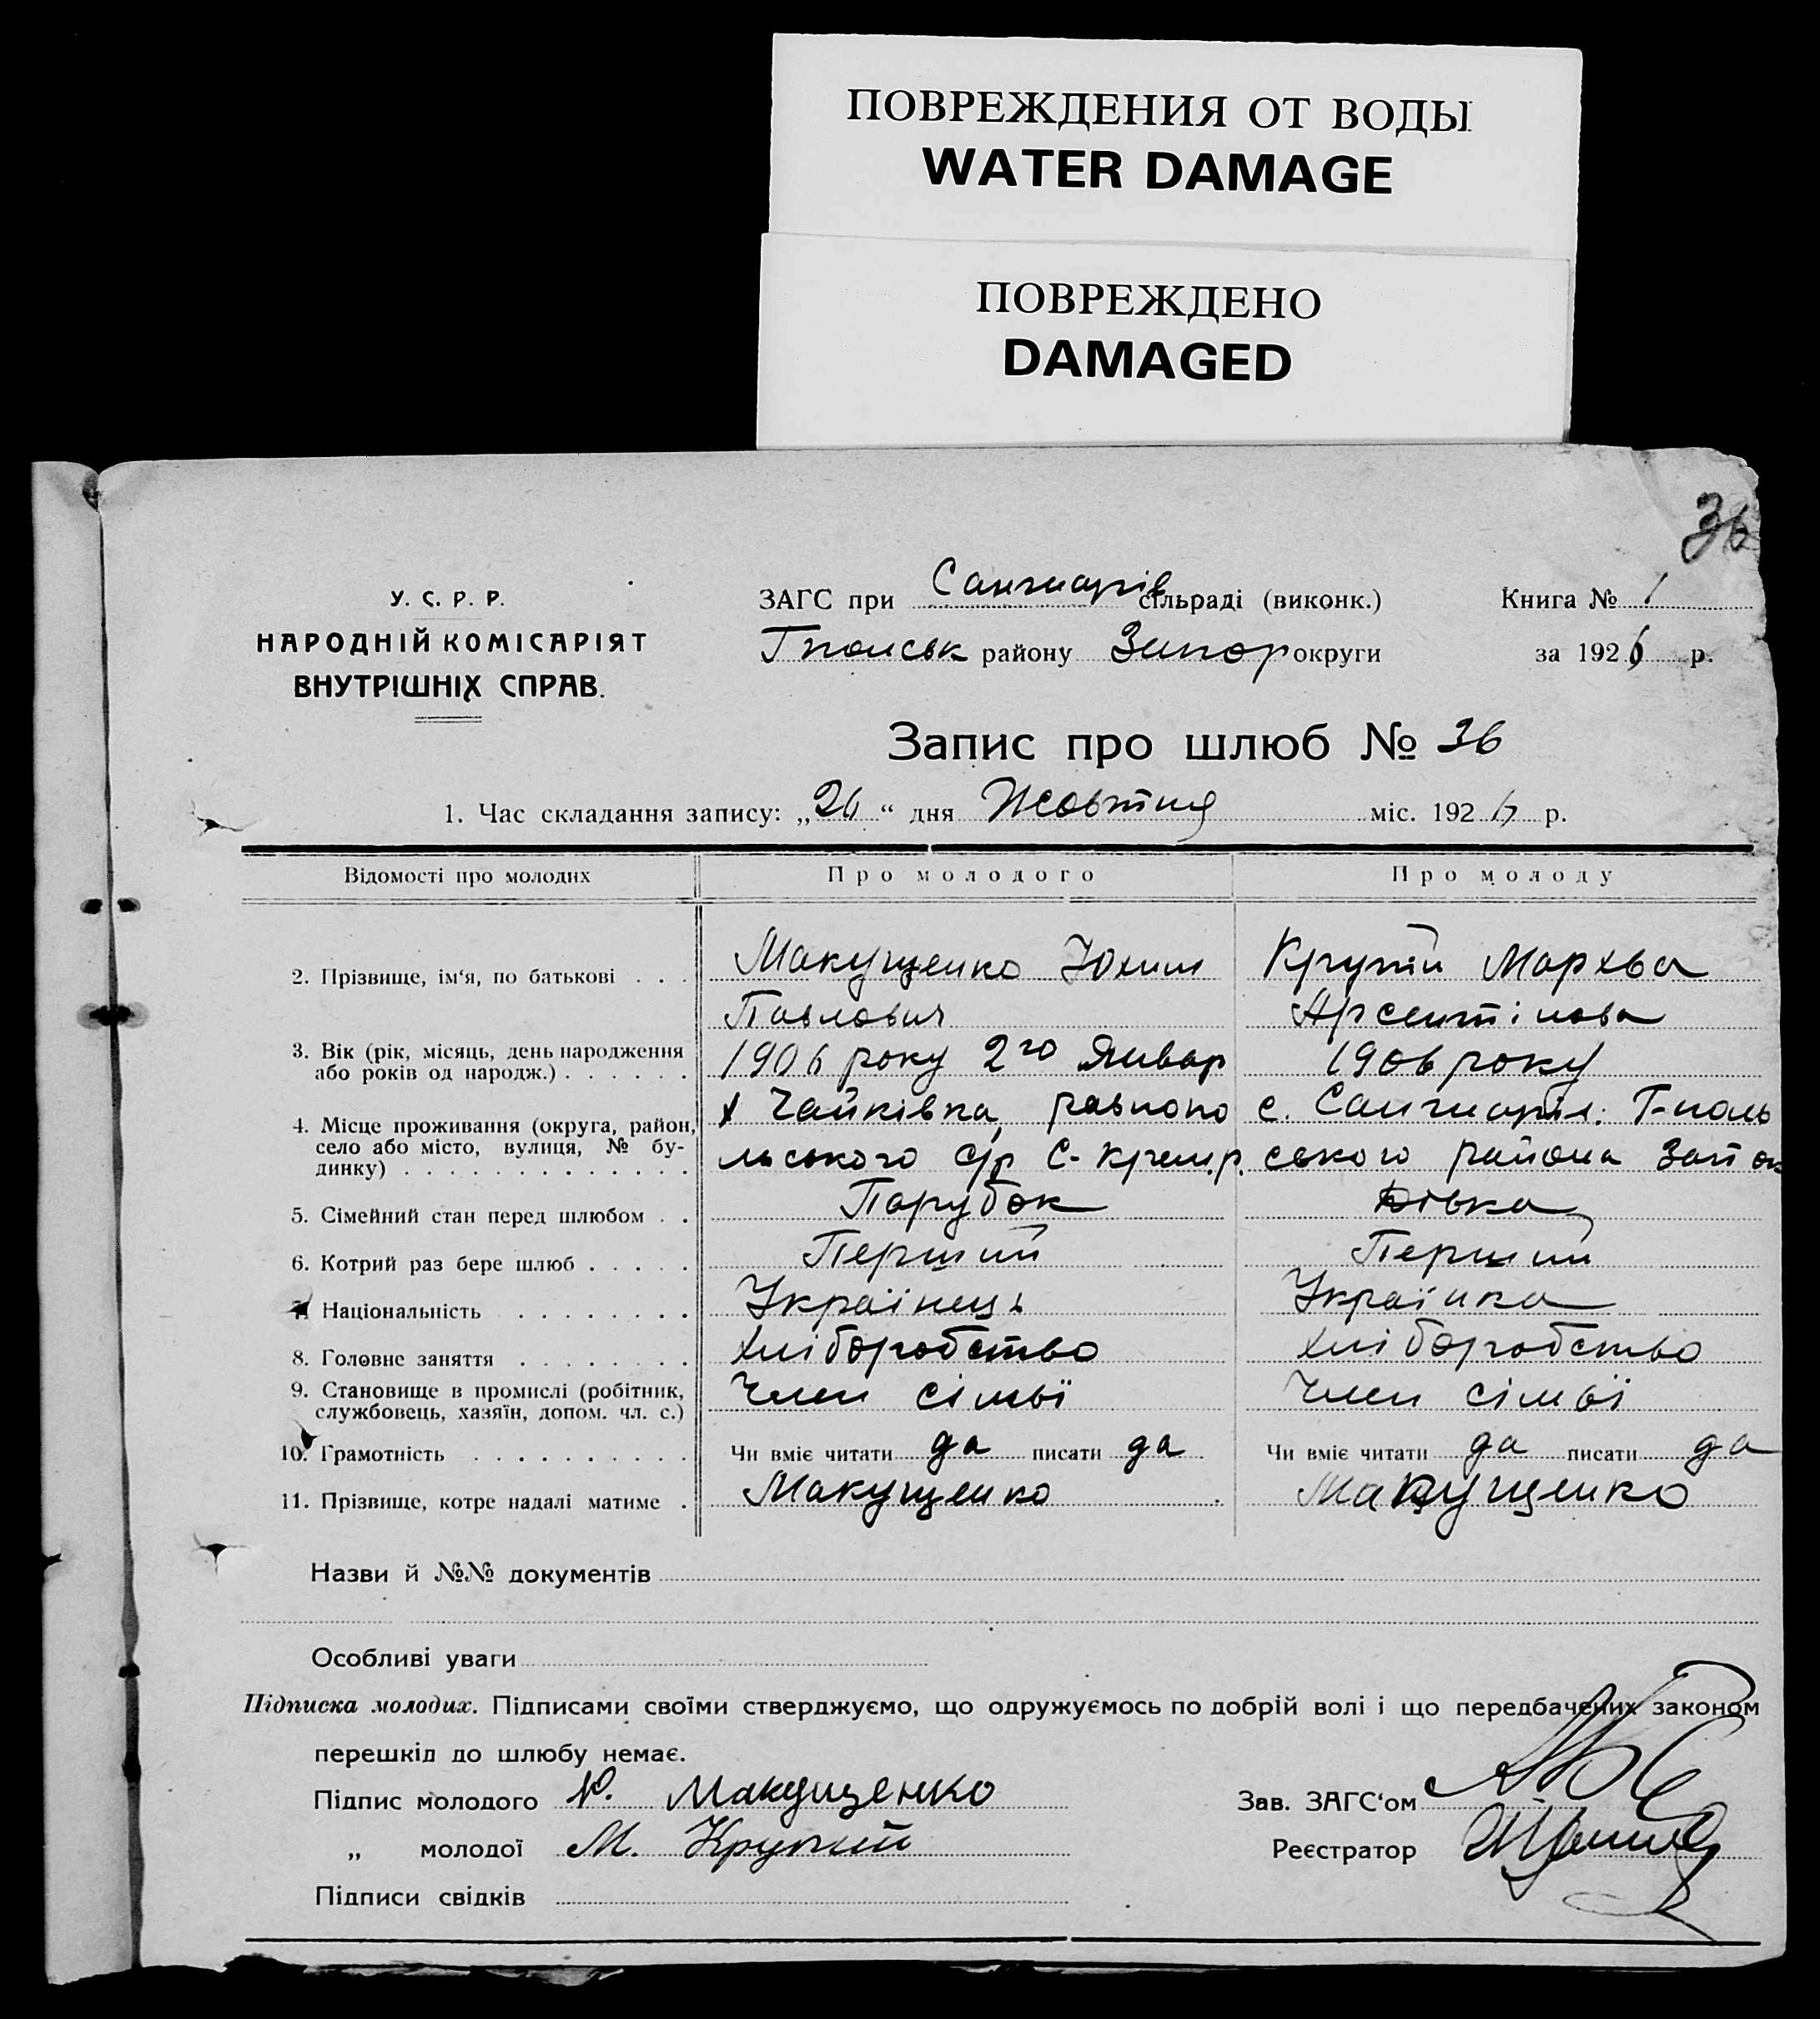 ПОВРЕЖДЕНИЯ ОТ ВОДЫ
WATER DAMAGE
ПОВРЕЖДЕНО
DAMAGED
36
У. С. Р. Р.
НАРОДНІЙ КОМІСАРІЯТ
ВНУТРІШНІХ СПРАВ.
ЗАГС при сільраді (виконк.) Книга № 1
району Запор округи за 1926 р.
Запис про шлюб № 36
1. Час складання запису: „26“ дня Жовтня міс. 1926 р.
Відомості про молодих Про молодого Про молоду
2. Прізвище, ім‘я, по батькові . . . Макущенко Юхим Крупій Мархва
Павлович Арсентіювa
3. Вік (рік, місяць, день народження 1906 року 2го Январ 1906 року
або років од народж.) . . . . . .
4. Місце проживання (округа, район, х Чайківка, равнопо с. Т-поль
село або місто, вулиця, № бу- льського с/р С- ського района Зап ок
динку) . . . . . . . . . . . . .
5. Сімейний стан перед шлюбом . . Парубок Дівка
6. Котрий раз бере шлюб . . . . . Перший Перший
7. Національність . . . . . . . . Українець Українка
8. Головне заняття . . . . . . . . хліборобство хліборобство
9. Становище в промислі (робітник, Член сімьї Член сімьї
службовець, хазяїн, допом. чл. с.)
10. Грамотність . . . . . . . . . . Чи вміє читати да писати да Чи вміє читати да писати да
11. Прізвище, котре надалі матиме . Макущенко Макущенко
Назви й №№ документів
Особливі уваги
Підписка молодих. Підписами своїми стверджуємо, що одружуємось по добрій волі і що передбачених законом
перешкід до шлюбу немає.
Підпис молодого Ю. Макущенко Зав. ЗАГС‘ом
„ молодої М. Крупій Реєстратор
Підписи свідків